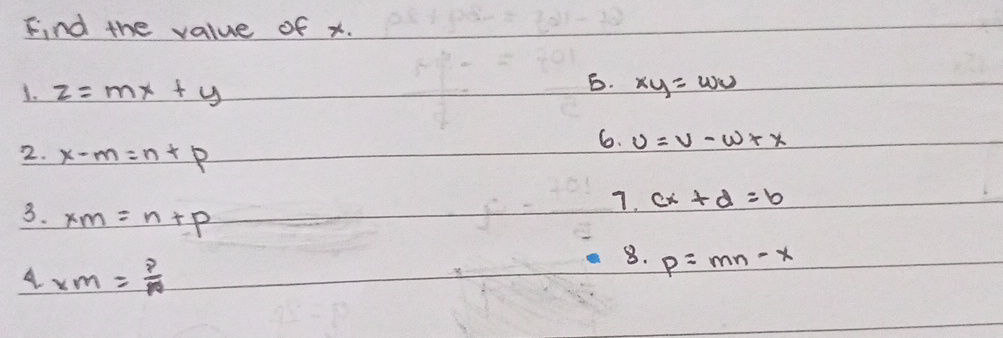 Find the value of x.
1. z = mx + y
2. x - m = n + p
3. xm = n + p
4. xm =
5. xy = wu
6. u = v - w + x
7. cx + d = b
8. p = mn - x